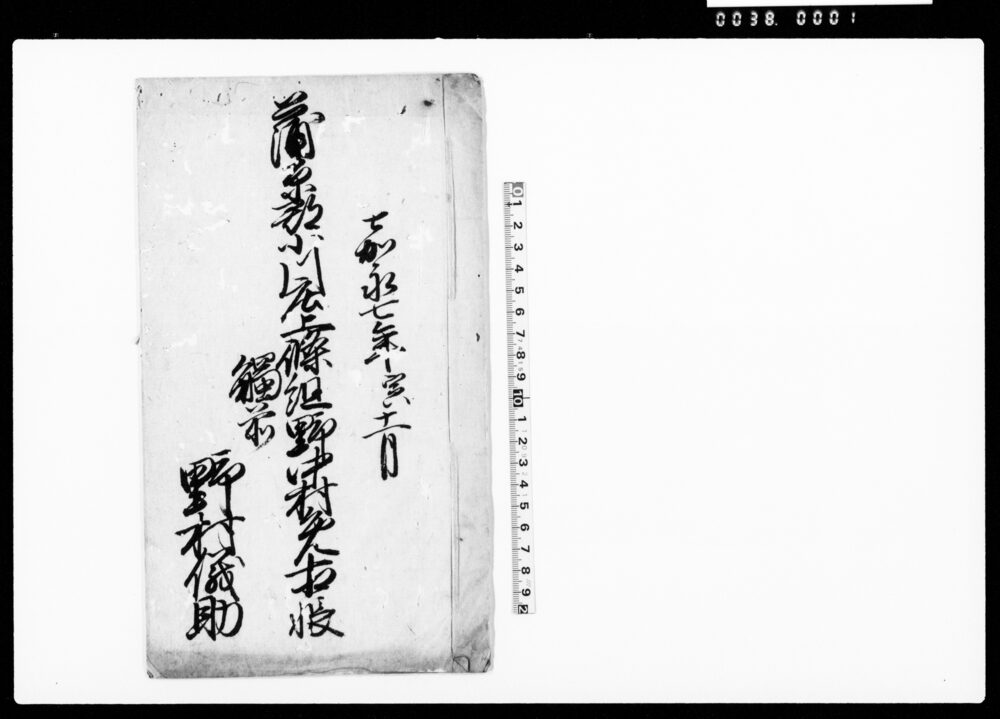 0038. 0001
嘉永七年寅十一月
蒲原郡小川庄上條組野中村免相帳
觸前
野村儀助
0 1 2 3 4 5 6 7 8 9 10 1 2 3 4 5 6 7 8 9 2